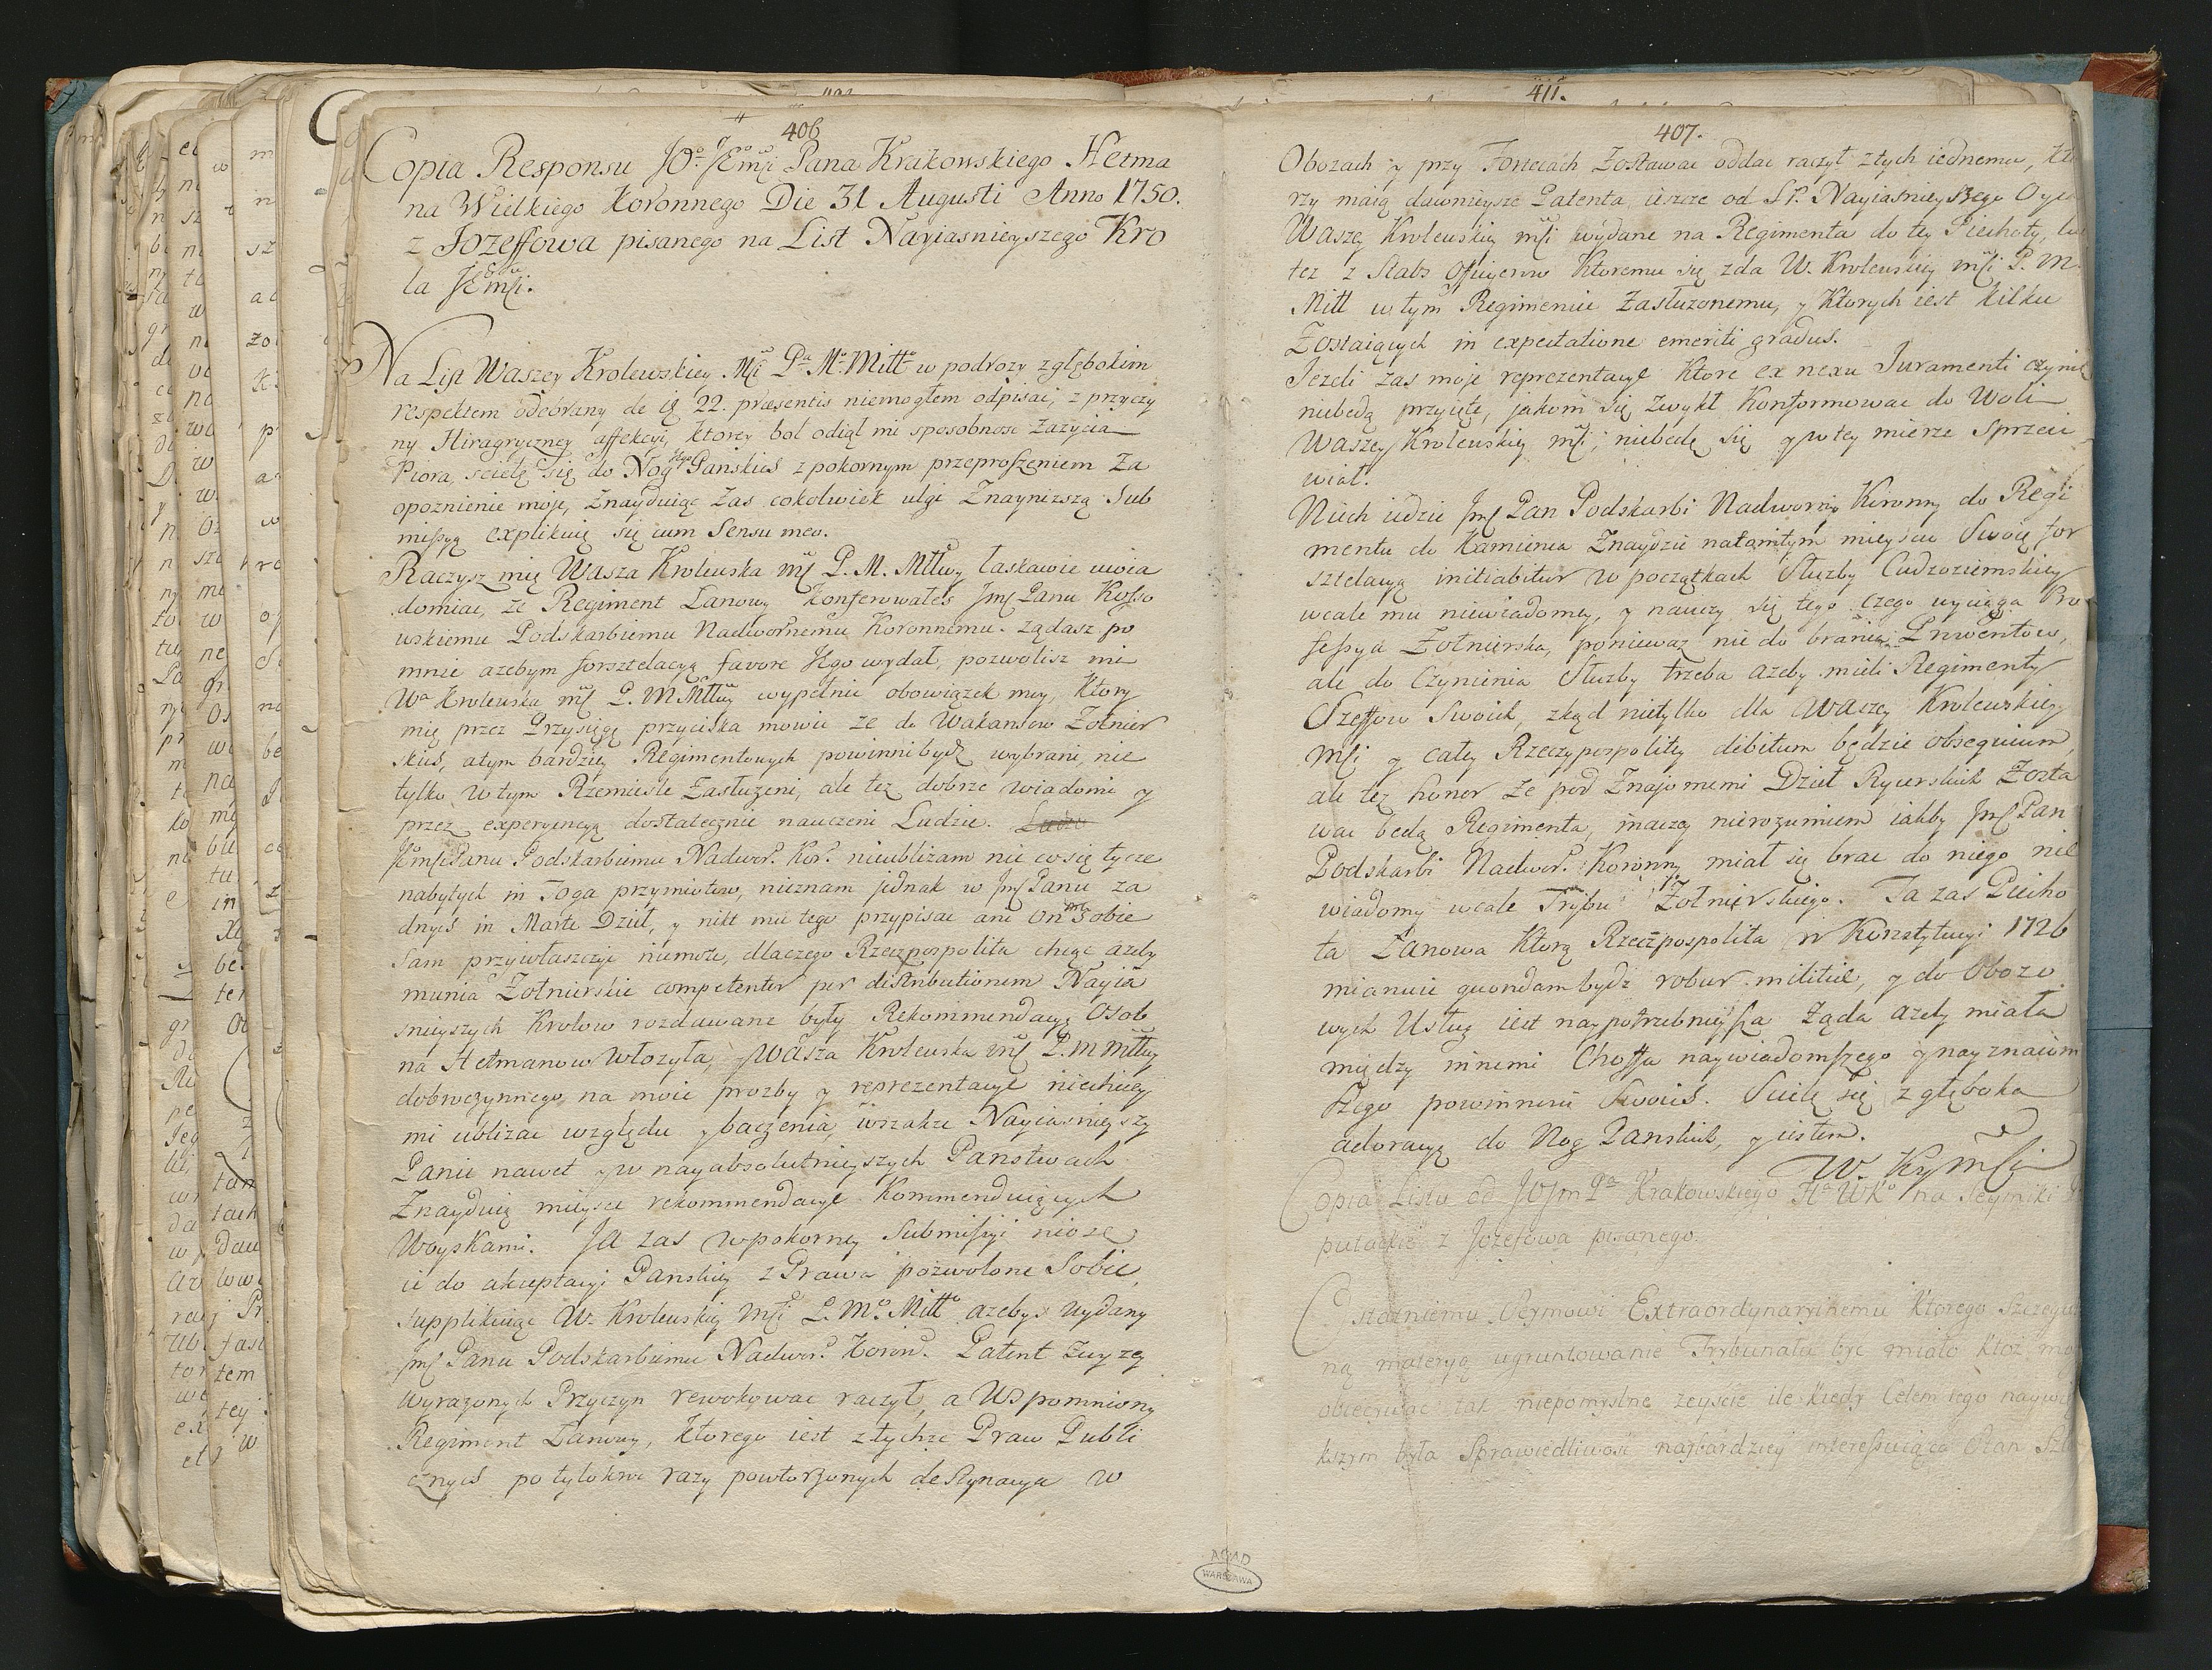 406
Copia Responsu JO. JEmsi Pana Krakowskiego Hetma
na Wielkiego Koronnego Die 31 Augusti Anno 1750.
z Jozeffowa pisanego na List Nayiasnieyszego Kro
la JEmsi.
Na List Waszey Krolewskiey Msci Pa Mo Mitto w podrozy z głębokim
respektem odebrany de 22. præsentis niemogłem odpisać, z przyczy
ny Hiragryczney affekcyi, ktorey bol odiął mi sposobnosc Zażycia
Piora, scielę się do Nog Panskich z pokornym przeproszeniem Za
opoznienie moje, Znayduiąc Zas cokolwiek ulgi Znaynizszą Sub
missyą explikuię się cum Sensu meo.
Raczysz mię Wasza Krolewska mść P. M. Mttwy łaskawie uwia
domiac, że Regiment Łanowy konferowałeś Jmsć Panu Kosso
wskiemu Podskarbiemu Nadwornemu Koronnemu. żądasz po
mnie azebym forsztelacyą favore Jego wydał, pozwolisz mi
Wa Krolewska mść P. M. Mttwy wypełnic obowiązek moy, ktory
mię przez Przysięgę przyciska mowic ze do Wakansow Zołnier
skich, atym bardziey Regimentowych powinni bydź wybrani, nie
tylko w tym Rzemiesle Zasłuzeni, ale tez dobrze wiadomi y
przez experyencyą dostatecznie nauczeni Ludzie.
JEmsci Panu Podskarbiemu Nadwor. Kor. nieublizam nic co się tycze
nabytych in Toga przymiotow, nieznam jednak w Jmsć Panu za
dnych in Marte Dzieł, y nikt mu tego przypisac ani on Sobie
Sam przywłaszczyc niemoze, dlaczego Rzeczpospolita chcąc azeby
munia Zołnierskie competenter per distributionem Nayia
snieyszych Krolow rozdawane były Rekommendacyą Osob
na Hetmanow włozyła, y Wasza Krolewska mść P. M Mttwy
dobroczynnego na moie prozby y reprezentacye niechciey
mi ublizac względu y baczenia, wszakze Nayiasnieyszy
Panie nawet y w nayabsolutnieyszych Panstwach
Znayduią mieysce rekommendacye Kommenduiących
Woyskami. Ja zas w pokorney Submissyi niosę
ie do akceptacyi Panskiey z Prawa pozwolone Sobie,
Supplikuiąc W. Krolewskiey Mści P. Mo Mitto azebys wydany
Jmsć Panu Podskarbiemu Nadwor. Koron. Patent zwyzey
wyrazonych Przyczyn rewokowac raczył, a Wspomniony
Regiment Łanowy, ktorego iest z tychze Praw Publi
cznych po tylokroc razy powtorzonych destynacya w
411.
407.
Obozach y przy Fortecach Zostawac oddac raczył z tych iednemu, kto
rzy maią dawnieysze Patenta ieszcze od SP. Nayiasnieyszego Oyca
Waszey Krolewskiey mści wydane na Regimenta do tey Piechoty, lub
tez z Stabs Officyerow ktoremu się zda W. Krolewskiey mści P. M.
Mitt w tym Regimencie Zasłuzonemu, y ktorych iest kilku
Zostaiących in expectatione emeriti gradus.
Jezeli zas moje reprezentacye ktore ex nexu Juramenti czynie
niebędą przyięte, jakom się zwykł konformowac do Woli
Waszey Krolewskiey mści, niebędę się y w tey mierze Sprzeci
wiał.
Niech idzie Jmsć Pan Podskarbi Nadworny Koronny do Regi
mentu do Kamienca Znaydzie natamtym mieyscu Swoię for
sztelacyą initiabitur w początkach Słuzby Cudzoziemskiey
wcale mu niewiadomey, y nauczy się tego czego wyciąga Pro
fessya Zołnierska, poniewaz nie do brania Prowentow,
ale do Czynienia Słuzby trzeba azeby mieli Regimenty
Szeffow Swoich, zkąd nietylko dla Waszey Krolewskiey
Mści y całey Rzeczypospolitey debitum będzie obsequium,
ale tez honor ze pod Znajomemi Dzieł Rycerskich Zosta
wac będą Regimenta, inaczey nierozumiem iakby Jmsć Pan
Podskarbi Nadwor. Koronny miał się brac do niego nie
wiadomy wcale Trybu Zołnierskiego. Ta zas Piecho
ta Łanowa ktorą Rzeczpospolita w Konstytucyi 1726
mianuie quondam bydź robur militiæ, y do Obozo
wych Usług iest naypotrzebnieysza żąda azeby miała
między innemi Cheffa naywiadomszego y nayznaiom
szego powinnosci Swoich. Scielę się z głęboką
adoracyą do Nog Panskich, y iestem.
W. Kr. y msci
Copia Listu od JOJm Pa Krakowskiego Ha WKo na Seymiki
putackie z Jozefowa pisanego.
Ostatniemu Seymowi Extraordynaryinemu ktorego Szczegul
ną materyą ugruntowanie Trybunału byc miało ktoż mo
obiecywac tak niepomyslne zeyscie ile kiedy Celem iego naywię
kszym była Sprawiedliwosc naybardziey interessuiąca Stan Szl
AGAD
WARSZAWA